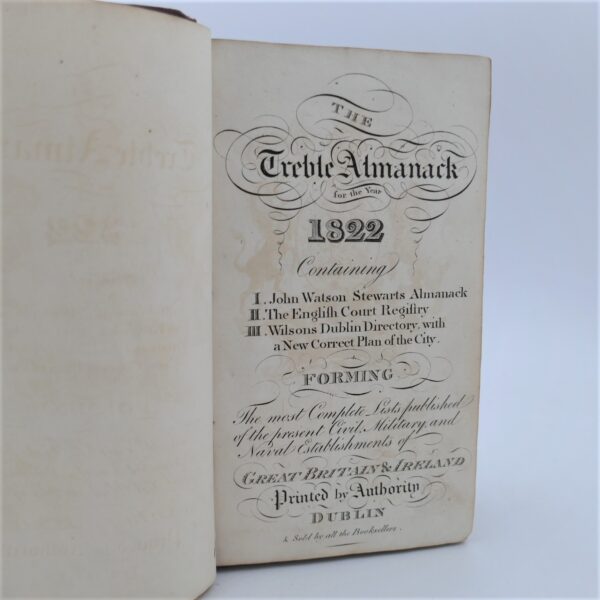 THE
Treble Almanack
for the Year
1822
Containing
I. John Watson Stewarts Almanack
II. The Engliſh Court Regiſtry
III. Wilsons Dublin Directory, with
a New Correct Plan of the City.
FORMING
The most Complete Lists published
of the present Civil, Military, and
Naval Establishments of
GREAT BRITAIN & IRELAND
Printed by Authority
DUBLIN
& Sold by all the Booksellers.